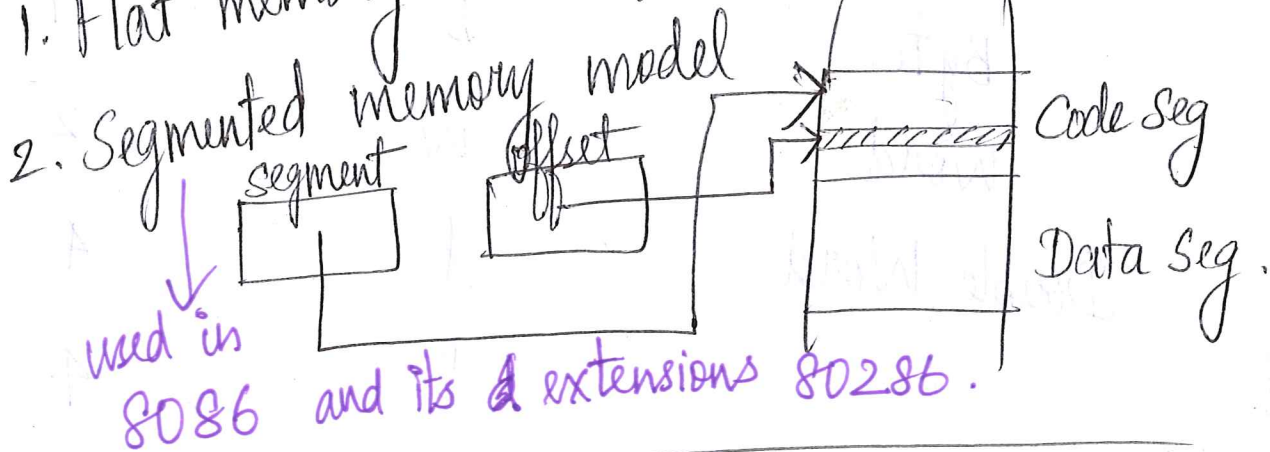 1. Flat memory
2. Segmented memory model
segment
Offset
Code Seg
Data Seg.
used in
8086 and its extensions 80286.